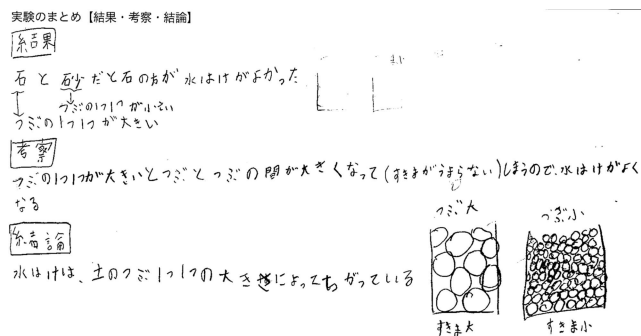 実験のまとめ【結果・考察・結論】
結果
石と砂だと石のほうが水はけがよかった
つぶの1つ1つが小さい
つぶの1つ1つが大きい
考察
つぶの1つ1つが大きいとつぶとつぶの間が大きくなって(すきまがうまらない)しまうので、水はけがよく
なる
結論
水はけは、土のつぶ1つ1つの大きさによってちがっている
つぶ大
つぶ小
すきま大
すきま小